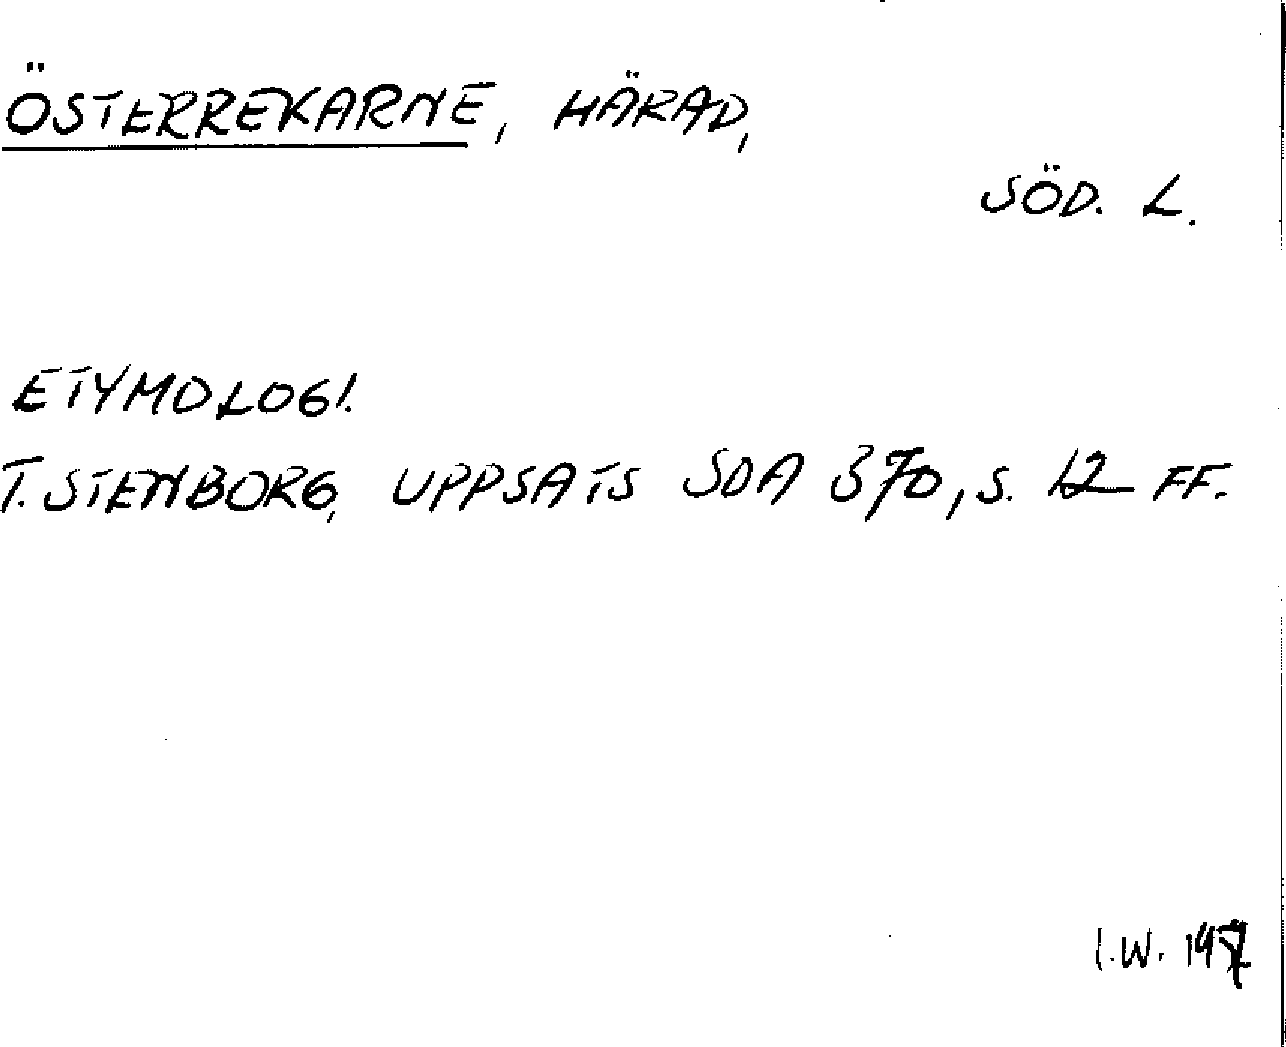 ÖSTERREKARNE, HÄRAD,
SÖD. L.
ETYMOLOGI.
T. STENBORG, UPPSATS SOA 370, S. 12 FF.
I.W.